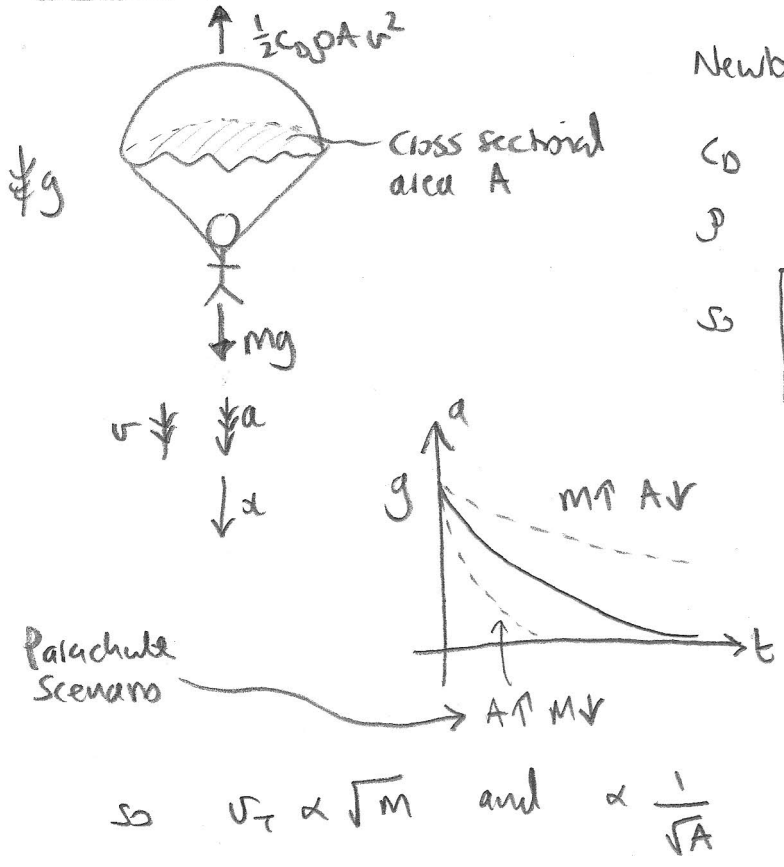 ½ C_D ρ A v²
Newto
cross sectional
area A
g
C_D
ρ
so
mg
v
a
x
a
g
m↑ A↓
t
Parachute
scenario
A↑ M↓
so v_T ∝ √m and ∝ 1/√A